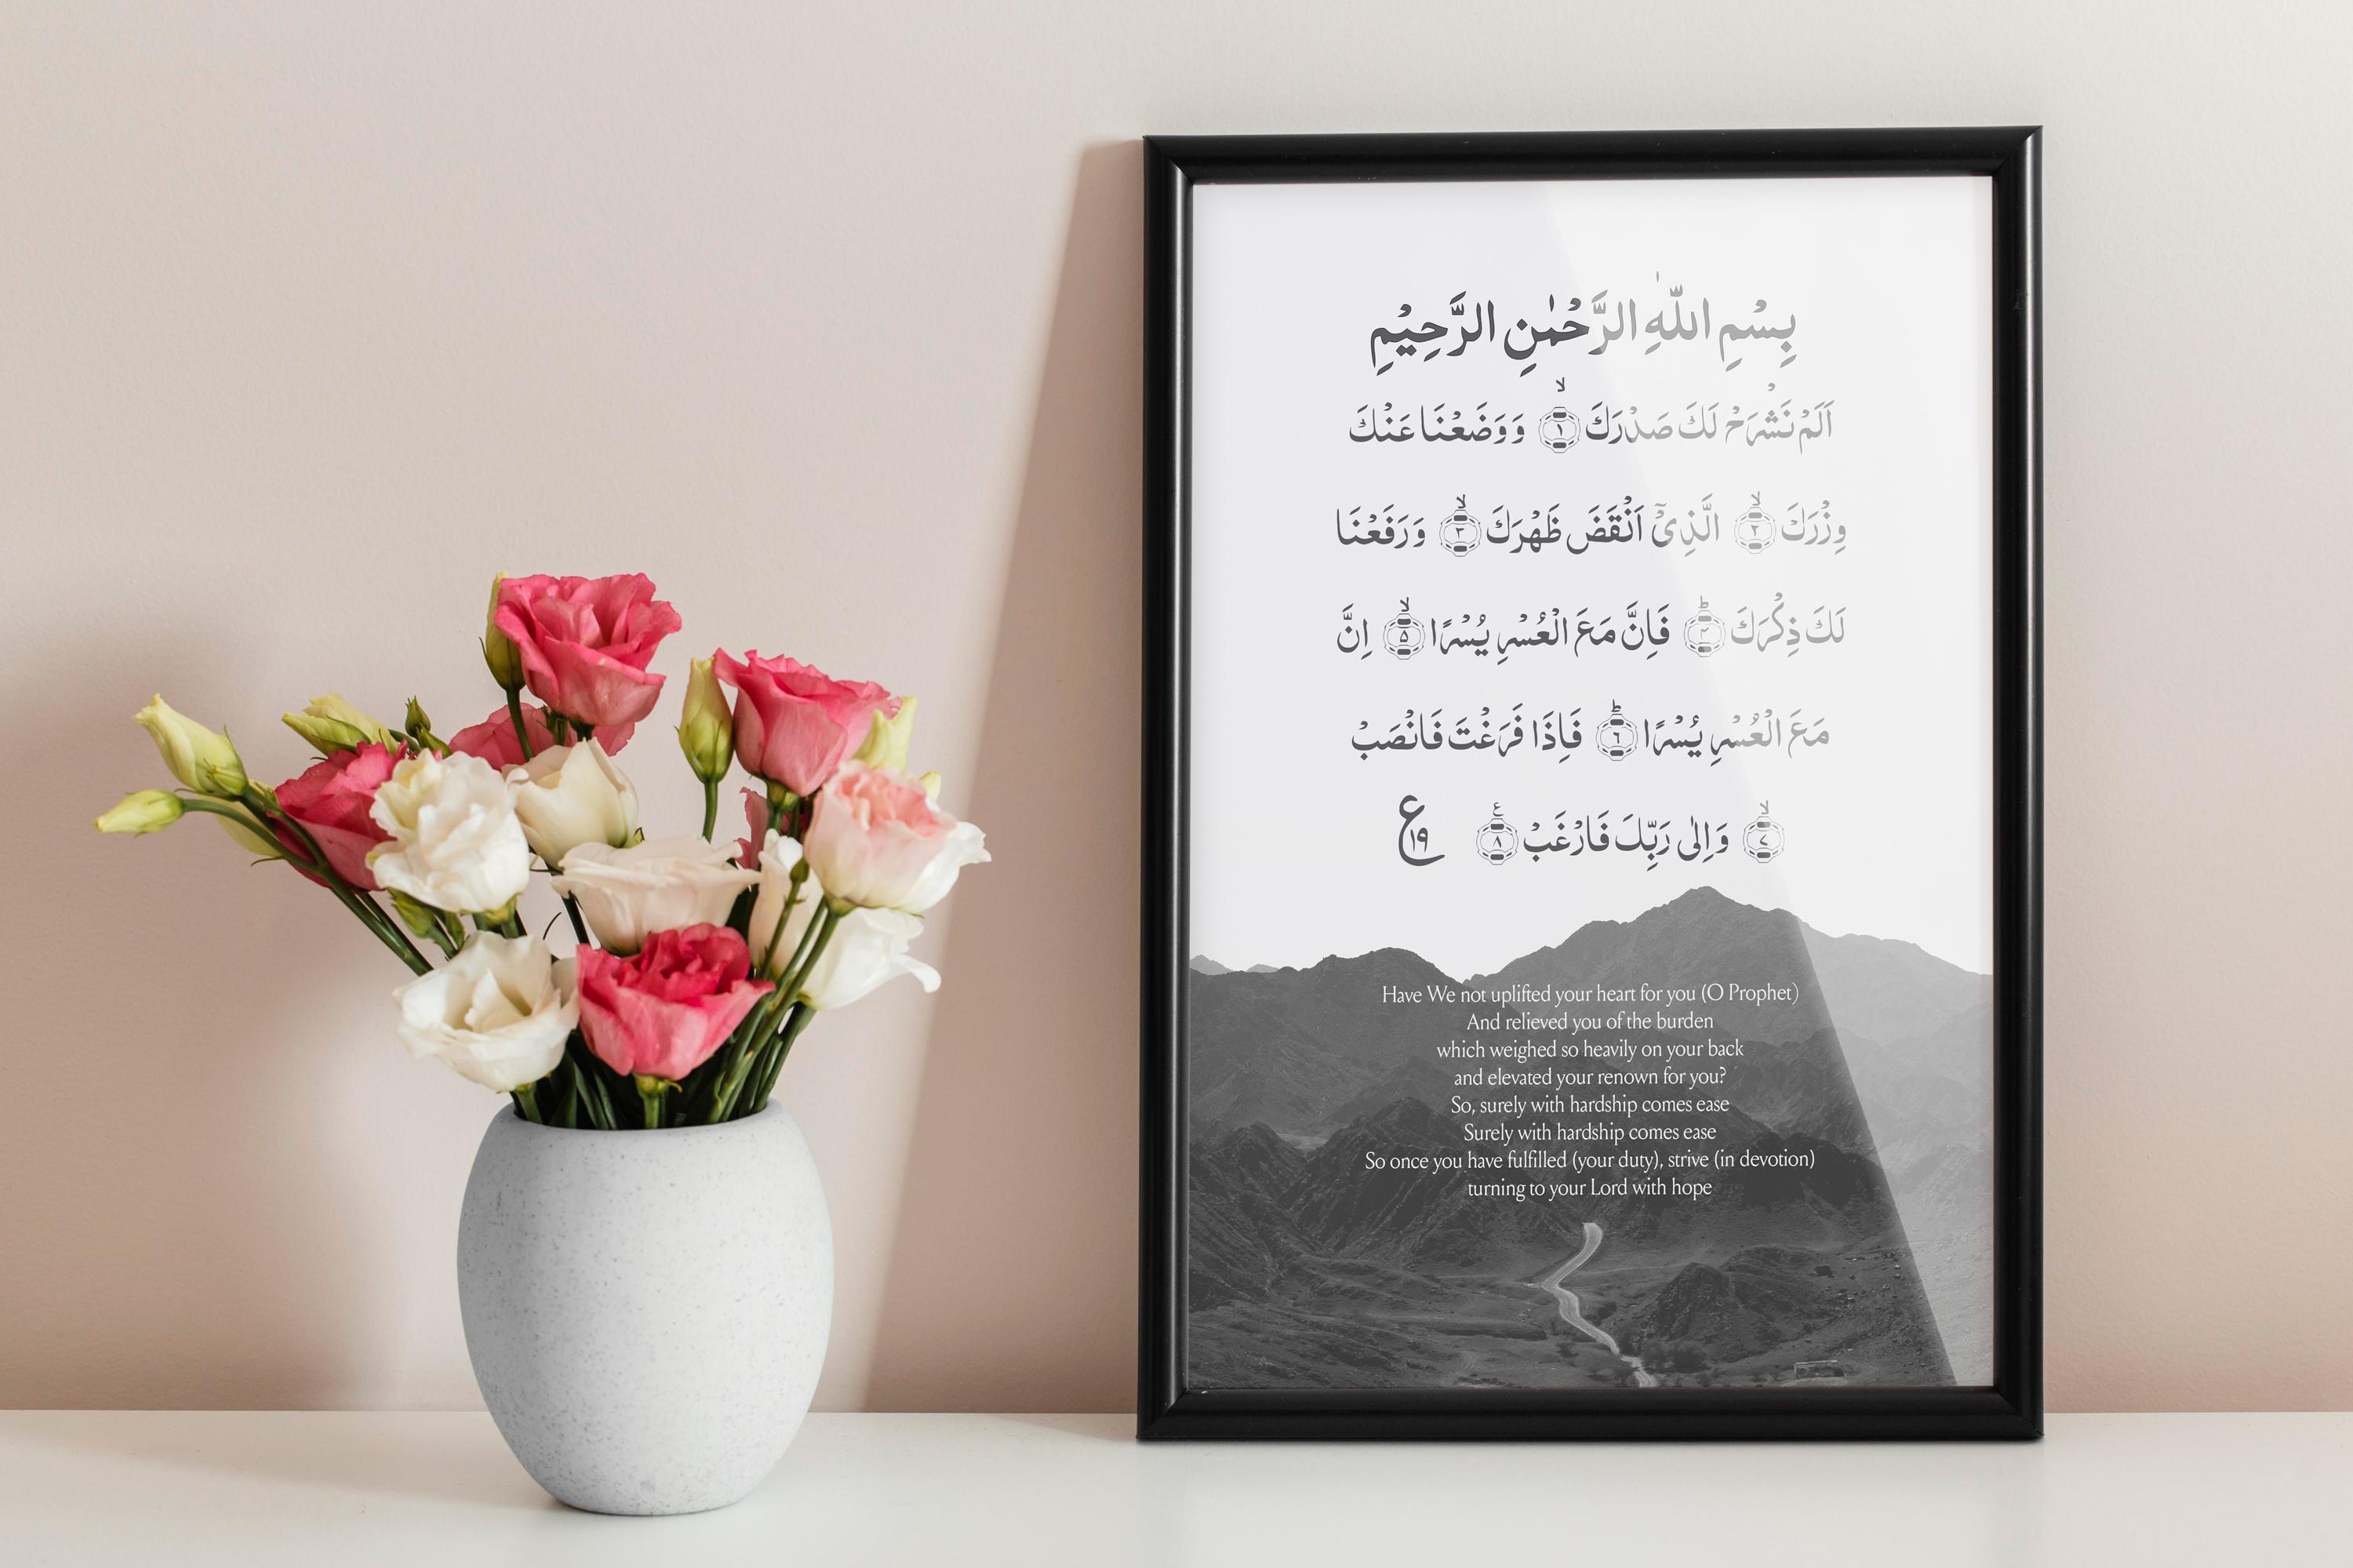 بِسْمِ اللّٰهِ الرَّحْمٰنِ الرَّحِيْمِ
اَلَمْ نَشْرَحْ لَكَ صَدْرَكَ ۙ‏﴿۱﴾ وَوَضَعْنَا عَنْكَ
وِزْرَكَ ۙ‏﴿۲﴾ الَّذِىْٓ اَنْقَضَ ظَهْرَكَ ۙ‏﴿۳﴾ وَرَفَعْنَا
لَكَ ذِكْرَكَ ؕ‏﴿۴﴾ فَاِنَّ مَعَ الْعُسْرِ يُسْرًا ۙ‏﴿۵﴾ اِنَّ
مَعَ الْعُسْرِ يُسْرًا ؕ‏﴿۶﴾ فَاِذَا فَرَغْتَ فَانْصَبْ
ۙ‏﴿۷﴾ وَاِلٰى رَبِّكَ فَارْغَبْ ﴿۸﴾ ع ۱۹
Have We not uplifted your heart for you (O Prophet)
And relieved you of the burden
which weighed so heavily on your back
and elevated your renown for you?
So, surely with hardship comes ease
Surely with hardship comes ease
So once you have fulfilled (your duty), strive (in devotion)
turning to your Lord with hope